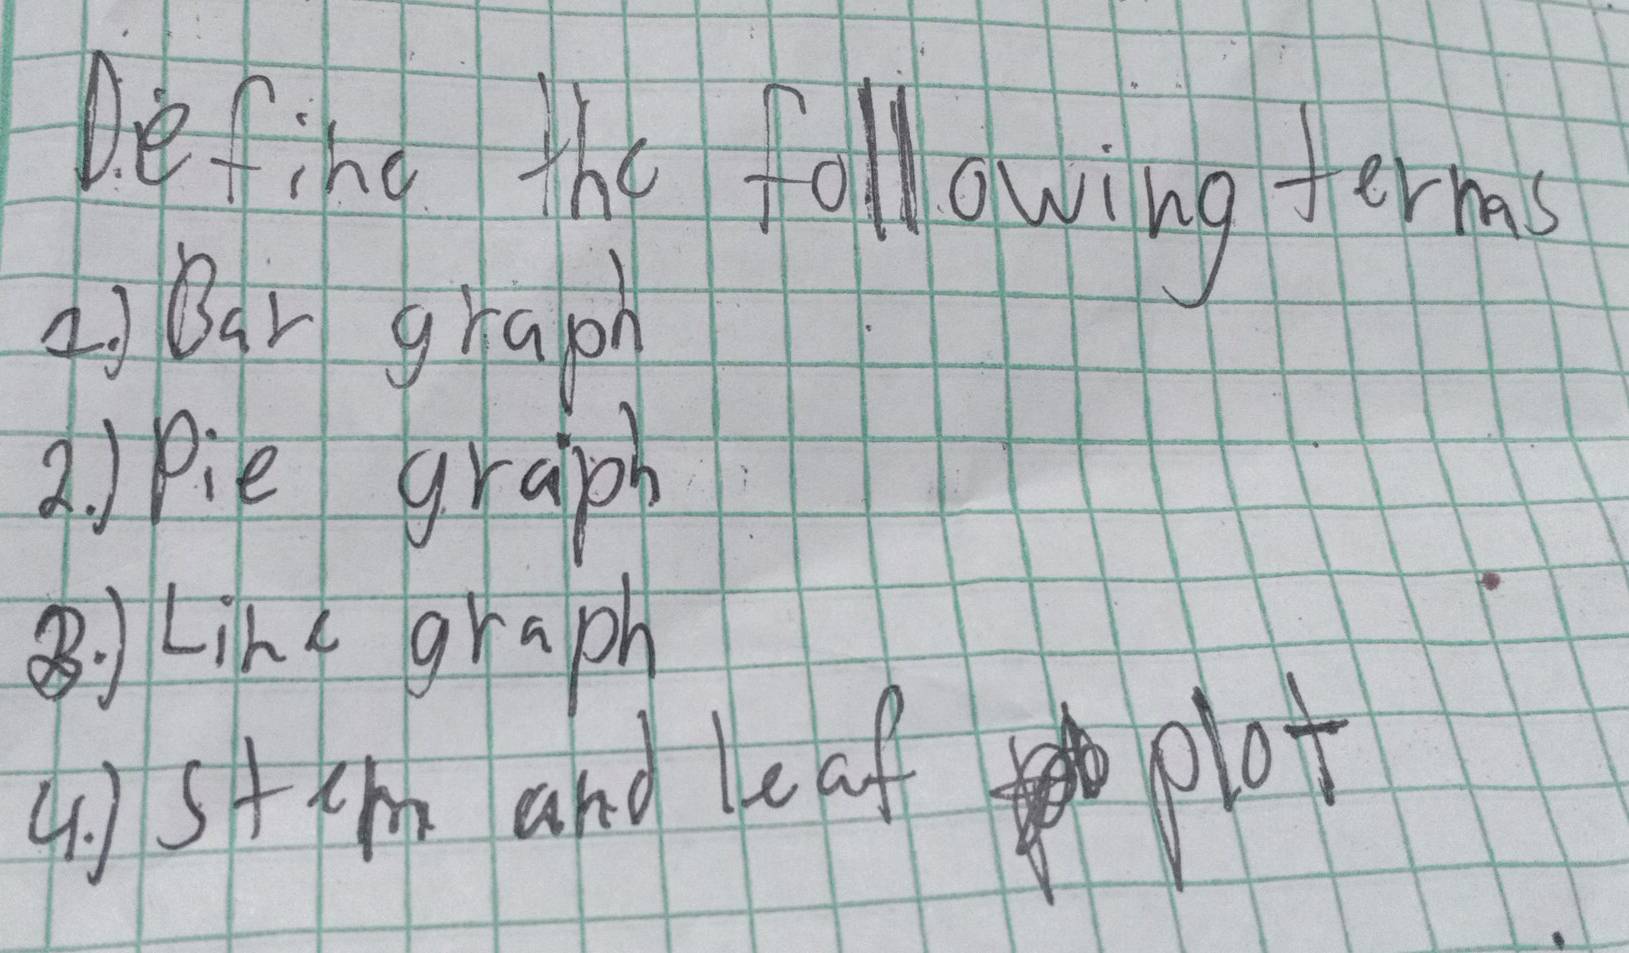 Define the following terms
1.) Bar graph
2.) Pie graph
3.) Line graph
4.) Stem and leaf plot